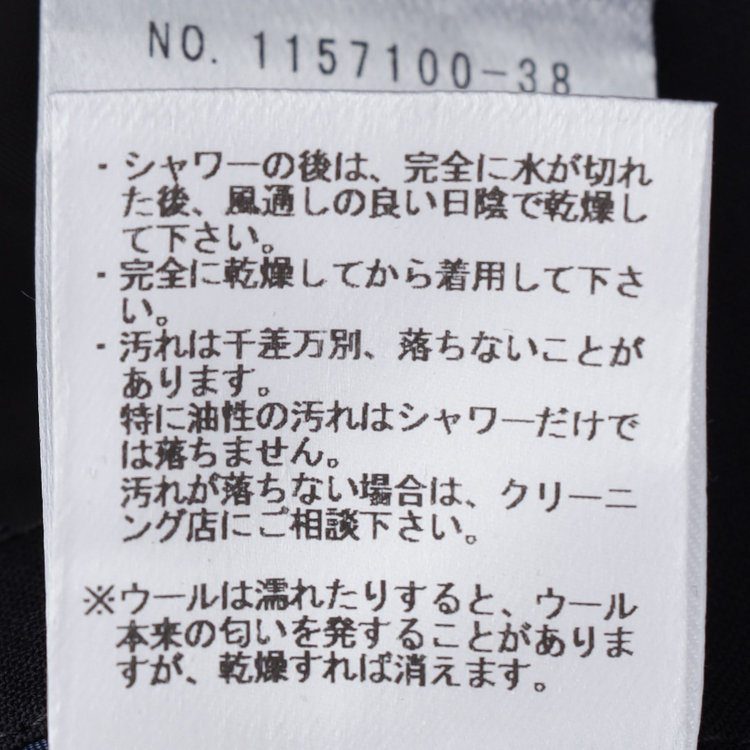 NO. 1157100-38
・シャワーの後は、完全に水が切れ
た後、風通しの良い日陰で乾燥し
て下さい。
・完全に乾燥してから着用して下さ
い。
・汚れは千差万別、落ちないことが
あります。
特に油性の汚れはシャワーだけで
は落ちません。
汚れが落ちない場合は、クリーニ
ング店にご相談下さい。
※ウールは濡れたりすると、ウール
本来の匂いを発することがありま
すが、乾燥すれば消えます。